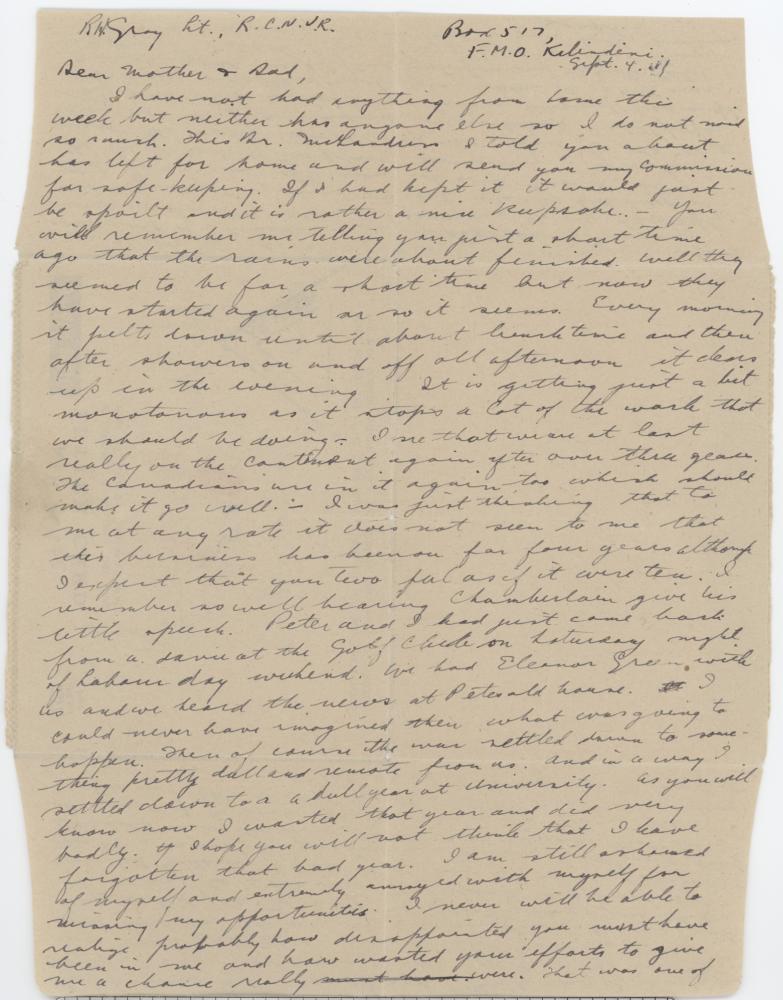 RHGray Lt., R.C.N.V.R.
Box 517,
F.M.O. Kilindini.
Sept. 4.
Dear Mother & Dad,
I have not had anything from home this
week but neither has anyone else so I do not mind
so much. This Dr. I told you about
has left for home and will send you my commission
for safe-keeping. If I had kept it it would just
be spoilt and it is rather a nice keepsake. – You
will remember me telling you just a short time
ago that the rains were about finished. Well they
seemed to be for a short time but now they
have started again or so it seems. Every morning
it pelts down until about lunch time and then
after showers on and off all afternoon it clears
up in the evening It is getting just a bit
monotonous as it stops a lot of the work that
we should be doing. – I see that we are at last
really on the continent again after over three years.
The Canadians are in it again too which should
make it go well. – I was just thinking that to
me at any rate it does not seem to me that
this business has been on for four years although
I expect that you two feel as if it were ten. I
remember so well hearing Chamberlain give his
little speech. Peter and I had just come back
from a dance at the Golf Club on Saturday night
of Labour day weekend. We had Eleanor Green with
us and we heard the news at Petes old house. I
could never have imagined then what was going to
happen. Then of course the war settled down to some-
thing pretty dull and remote from us. and in a way I
settled down to a a dull year at University. As you will
know now I wasted that year and did very
badly. I hope you will not think that I have
forgotten that bad year. I am still ashamed
of myself and extremely annoyed with myself for
missing my opportunities. I never will be able to
realize probably how disappointed you must have
been in me and how wasted your efforts to give
me a chance really must have were. That was one of